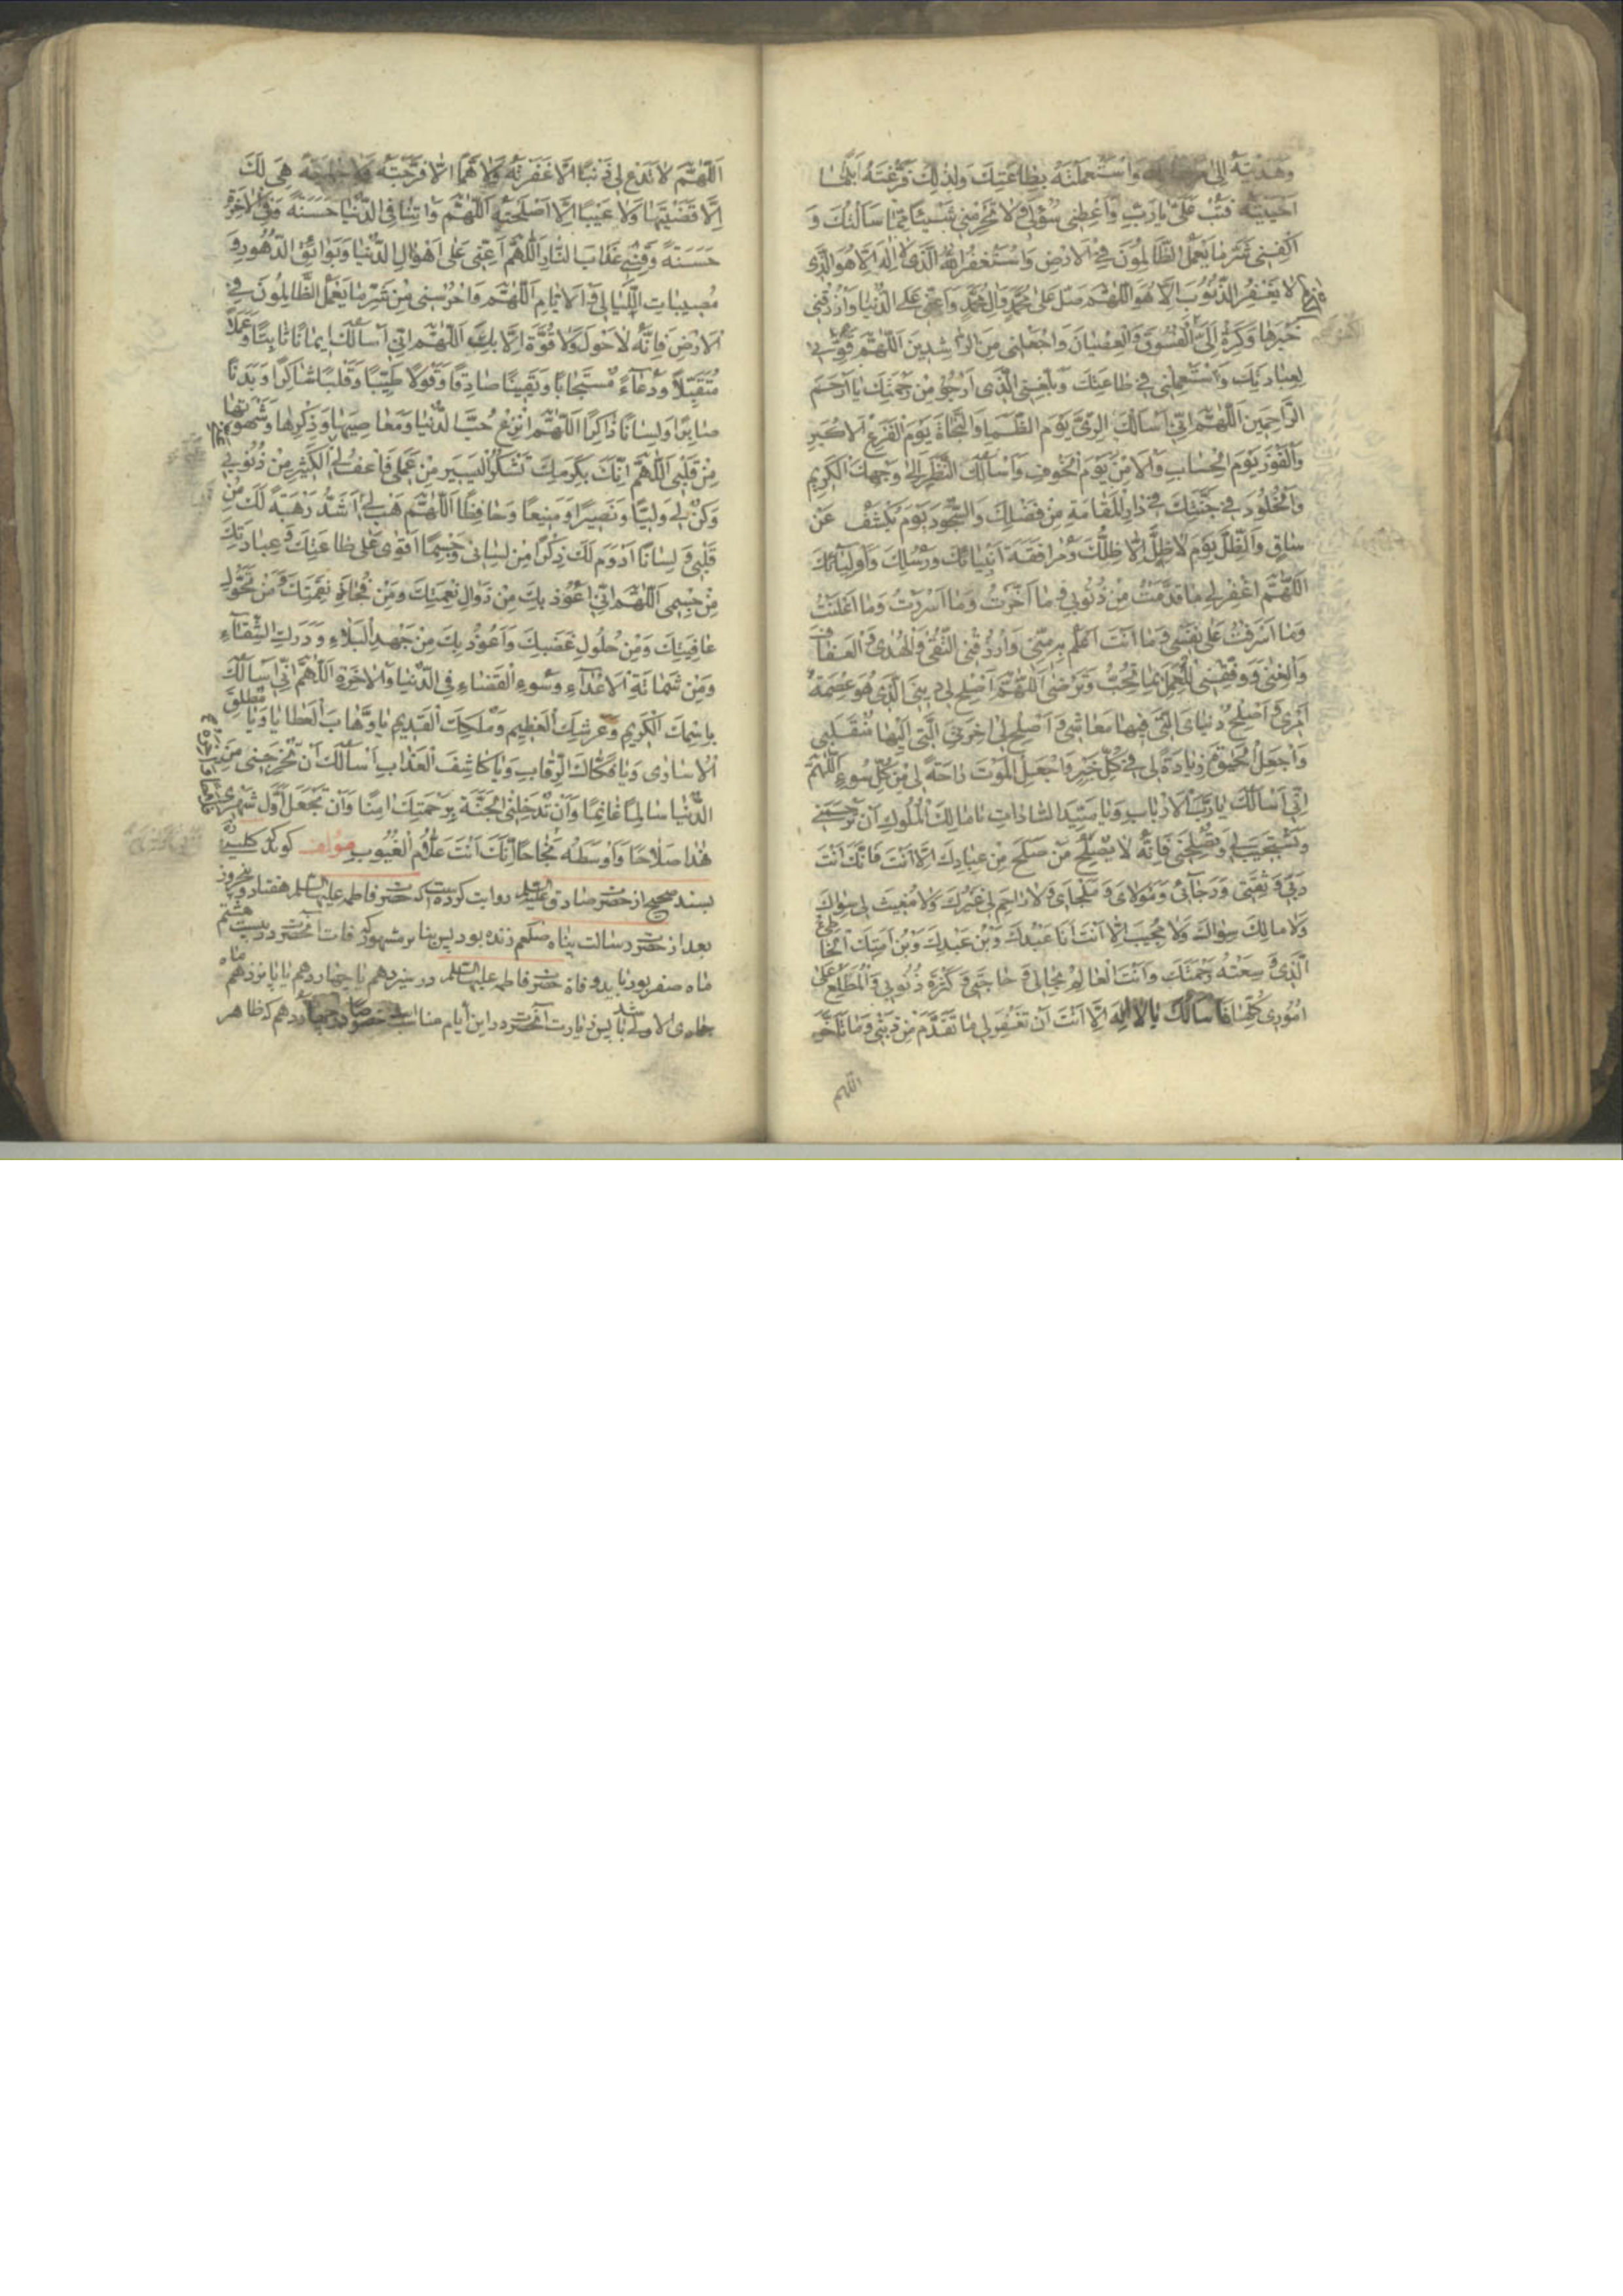 وَهَدَيْتَهُ اِلىٰ وَاسْتَعْمَلْتَهُ بِطاعَتِكَ وَلِذٰلِكَ فَرَّغْتَهُ اَيّٰامَ
اَحْيَيْتَهُ فَتُبْ عَلَىَّ يٰارَبِّ وَاَعْطِنى سُؤْلى وَلا تَحْرِمْنى شَيْئًا مِمّا سَاَلْتُكَ وَ
اكْفِنى شَرَّ مٰا يَعْمَلُ الظّٰالِمُونَ فِى الْاَرْضِ وَاَسْتَغْفِرُ اللهَ الَّذى لٰا اِلٰهَ اِلّا هُوَ الَّذى
لا يَغْفِرُ الذُّنُوبَ اِلّا هُوَ اَللّٰهُمَّ صَلِّ عَلىٰ مُحَمَّدٍ وَاٰلِ مُحَمَّدٍ وَاَعِنّى عَلَى الدُّنْيٰا وَارْزُقْنى
خَيْرَهٰا وَكَرِّهْ اِلَىَّ الْفُسُوقَ وَالْعِصْيٰانَ وَاجْعَلْنى مِنَ الرّٰاشِدينَ اَللّٰهُمَّ قَوِّنى
لِعِبٰادَتِكَ وَاسْتَعْمِلْنى فى طٰاعَتِكَ وَبَلِّغْنِى الَّذى اَرْجُو مِنْ رَحْمَتِكَ يٰا اَرْحَمَ
الرّٰاحِمينَ اَللّٰهُمَّ اِنّى اَسْاَلُكَ الرِّىَّ يَوْمَ الظَّمَاِ وَالنَّجٰاةَ يَوْمَ الْفَزَعِ الْاَكْبَرِ
وَالْفَوْزَ يَوْمَ الْحِسٰابِ وَالْاَمْنَ يَوْمَ الْخَوْفِ وَاَسْاَلُكَ النَّظَرَ اِلىٰ وَجْهِكَ الْكَريمِ
وَالْخُلُودَ فى جَنَّتِكَ فى دٰارِ الْمُقٰامَةِ مِنْ فَضْلِكَ وَالسُّجُودَ يَوْمَ يُكْشَفُ عَنْ
سٰاقٍ وَالظِّلَّ يَوْمَ لاظِلَّ اِلّا ظِلُّكَ وَمُرٰافَقَةَ اَنْبِيٰائِكَ وَرُسُلِكَ وَاَوْلِيٰائِكَ
اَللّٰهُمَّ اغْفِرْ لى مٰا قَدَّمْتُ مِنْ ذُنُوبى وَمٰا اَخَّرْتُ وَمٰا اَسْرَرْتُ وَمٰا اَعْلَنْتُ
وَمٰا اَسْرَفْتُ عَلىٰ نَفْسى وَمٰا اَنْتَ اَعْلَمُ بِهِ مِنّى وَارْزُقْنِى التُّقىٰ وَالْهُدىٰ وَالْعَفٰافَ
وَالْغِنىٰ وَوَفِّقْنى لِلْعَمَلِ بِمٰا تُحِبُّ وَتَرْضىٰ اَللّٰهُمَّ اَصْلِحْ لى دينِىَ الَّذى هُوَ عِصْمَةُ
اَمْرى وَاَصْلِحْ دُنْيٰاىَ الَّتى فيهٰا مَعٰاشى وَاَصْلِحْ لى اٰخِرَتِىَ الَّتى اِلَيْهٰا مُنْقَلَبى
وَاجْعَلِ الْحَيٰوةَ زِيٰادَةً لى فى كُلِّ خَيْرٍ وَاجْعَلِ الْمَوْتَ رٰاحَةً لى مِنْ كُلِّ سُوءٍ اَللّٰهُمَّ
اِنّى اَسْاَلُكَ يٰارَبَّ الْاَرْبٰابِ وَيٰا سَيِّدَ السّٰادٰاتِ يٰا مٰالِكَ الْمُلُوكِ اَنْ تَرْحَمَنى
وَتَسْتَجيبَ لى وَتُصْلِحَنى فَاِنَّهُ لا يُصْلِحُ مَنْ صَلَحَ مِنْ عِبٰادِكَ اِلّا اَنْتَ فَاِنَّكَ اَنْتَ
رَبّى وَثِقَتى وَرَجٰائى وَمَوْلاىَ وَمَلْجٰاىَ وَلا رٰاحِمَ لى غَيْرُكَ وَلا مُغيثَ لى سِوٰاكَ
وَلا مٰالِكَ سِوٰاكَ وَلا مُجيبَ اِلّا اَنْتَ اَنَا عَبْدُكَ وَابْنُ عَبْدِكَ وَابْنُ اَمَتِكَ الْخٰاطِئُ
الَّذى وَسِعَتْهُ رَحْمَتُكَ وَاَنْتَ الْعٰالِمُ بِحٰالى وَحٰاجَتى وَكَثْرَةِ ذُنُوبى وَالْمُطَّلِعُ عَلىٰ
اُمُورى كُلِّهٰا فَاَسْاَلُكَ يٰا لا اِلٰهَ اِلّا اَنْتَ اَنْ تَغْفِرَ لى مٰا تَقَدَّمَ مِنْ ذَنْبى وَمٰا تَاَخَّرَ
اللهم
اَللّٰهُمَّ لا تَدَعْ لى ذَنْبًا اِلّا غَفَرْتَهُ وَلا هَمًّا اِلّا فَرَّجْتَهُ وَلا حٰاجَةً هِىَ لَكَ
اِلّا قَضَيْتَهٰا وَلا عَيْبًا اِلّا اَصْلَحْتَهُ اَللّٰهُمَّ وَاٰتِنٰا فِى الدُّنْيٰا حَسَنَةً وَفِى الْاٰخِرَةِ
حَسَنَةً وَقِنى عَذٰابَ النّٰارِ اَللّٰهُمَّ اَعِنّى عَلىٰ اَهْوٰالِ الدُّنْيٰا وَبَوٰائِقِ الدُّهُورِ وَ
مُصيبٰاتِ اللَّيٰالى وَالْاَيّٰامِ اَللّٰهُمَّ وَاحْرُسْنى مِنْ شَرِّ مٰا يَعْمَلُ الظّٰالِمُونَ فِى
الْاَرْضِ فَاِنَّهُ لاحَوْلَ وَلا قُوَّةَ اِلّا بِكَ اَللّٰهُمَّ اِنّى اَسْاَلُكَ ايمٰانًا ثٰابِتًا وَعَمَلًا
مُتَقَبَّلًا وَدُعٰاءً مُسْتَجٰابًا وَيَقينًا صٰادِقًا وَقَوْلًا طَيِّبًا وَقَلْبًا شٰاكِرًا وَبَدَنًا
صٰابِرًا وَلِسٰانًا ذٰاكِرًا اَللّٰهُمَّ انْزِعْ حُبَّ الدُّنْيٰا وَمَعٰاصِيَهٰا وَذِكْرَهٰا وَشَهْوَتَهٰا
مِنْ قَلْبى اَللّٰهُمَّ اِنَّكَ بِكَرَمِكَ تَشْكُرُ الْيَسيرَ مِنْ عَمَلى فَاعْفُ لِىَ الْكَثيرَ مِنْ ذُنُوبى
وَكُنْ لى وَلِيًّا وَنَصيرًا وَمَنيعًا وَحٰافِظًا اَللّٰهُمَّ هَبْ لى اَشَدَّ رَهْبَةً لَكَ مِنْ
قَلْبى وَلِسٰانًا اَدْوَمَ لَكَ ذِكْرًا مِنْ لِسٰانى وَجِسْمًا اَقْوىٰ عَلىٰ طٰاعَتِكَ وَعِبٰادَتِكَ
مِنْ جِسْمى اَللّٰهُمَّ اِنّى اَعُوذُ بِكَ مِنْ زَوٰالِ نِعْمَتِكَ وَمِنْ فُجٰاءَةِ نِقْمَتِكَ وَمِنْ تَحَوُّلِ
عٰافِيَتِكَ وَمِنْ حُلُولِ غَضَبِكَ وَاَعُوذُ بِكَ مِنْ جَهْدِ الْبَلاءِ وَدَرَكِ الشَّقٰاءِ
وَمِنْ شَمٰاتَةِ الْاَعْدٰاءِ وَسُوءِ الْقَضٰاءِ فِى الدُّنْيٰا وَالْاٰخِرَةِ اَللّٰهُمَّ اِنّى اَسْاَلُكَ
بِاسْمِكَ الْكَريمِ وَعَرْشِكَ الْعَظيمِ وَمُلْكِكَ الْقَديمِ يٰا وَهّٰابَ الْعَطٰايٰا وَيٰا مُطْلِقَ
الْاُسٰارىٰ وَيٰا فَكّٰاكَ الرِّقٰابِ وَيٰا كٰاشِفَ الْعَذٰابِ اَسْاَلُكَ اَنْ تُخْرِجَنى مِنَ
الدُّنْيٰا سٰالِمًا غٰانِمًا وَاَنْ تُدْخِلَنِى الْجَنَّةَ بِرَحْمَتِكَ اٰمِنًا وَاَنْ تَجْعَلَ اَوَّلَ شَهْرى
هٰذٰا صَلاحًا وَاَوْسَطَهُ نَجٰاحًا اِنَّكَ اَنْتَ عَلّٰامُ الْغُيُوبِ مؤلف كويد كه كلينى
بسند صحيح از حضرت صادق عليه السلم روايت كرده است كه حضرت فاطمه عليها السلم هفتاد و پنج روز
بعد از حضرت رسالت پناه صلعم زنده بود پس بنا بر مشهور كه وفات آنحضرت در بيست هشتم
ماه صفر بود بايد وفاة حضرت فاطمه عليها السلم در سيزدهم يا چهاردهم يا پانزدهم ماه
جمادى الاولى باشد پس زيارت آنحضرت در اين ايام مناسب است خصوصا در چهاردهم كه ظاهر